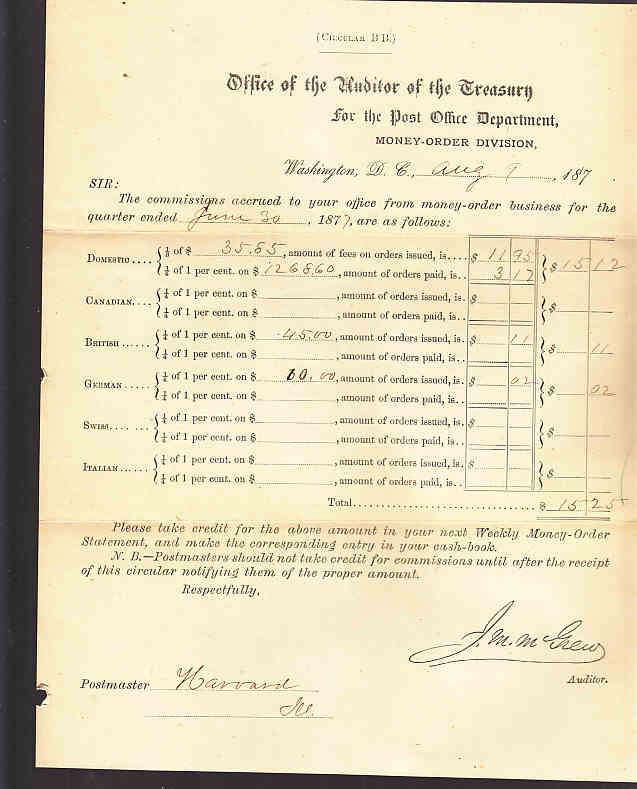 (Circular B B.)
Office of the Auditor of the Treasury
For the Post Office Department,
MONEY-ORDER DIVISION,
Washington, D. C., Aug 9, 187
SIR:
The commissions accrued to your office from money-order business for the
quarter ended June 30, 1877, are as follows:
Domestic.... { ⅓ of $ 35.85, amount of fees on orders issued, is.... $ 11 95 } $ 15 12
{ ¼ of 1 per cent. on $ 1268.60, amount of orders paid, is.. 3 17
Canadian.... { ¼ of 1 per cent. on $ , amount of orders issued, is. $ } $
{ ¼ of 1 per cent. on $ , amount of orders paid, is..
British ...... { ¼ of 1 per cent. on $ 45.00, amount of orders issued, is. $ 11 } $ 11
{ ¼ of 1 per cent. on $ , amount of orders paid, is..
German ..... { ¼ of 1 per cent. on $ 10.00, amount of orders issued, is. $ 02 } $ 02
{ ¼ of 1 per cent. on $ , amount of orders paid, is..
Swiss........ { ¼ of 1 per cent. on $ , amount of orders issued, is. $ } $
{ ¼ of 1 per cent. on $ , amount of orders paid, is..
Italian ...... { ¼ of 1 per cent. on $ , amount of orders issued, is. $ } $
{ ¼ of 1 per cent. on $ , amount of orders paid, is..
Total................................ $ 15 25
Please take credit for the above amount in your next Weekly Money-Order
Statement, and make the corresponding entry in your cash-book.
N. B.—Postmasters should not take credit for commissions until after the receipt
of this circular notifying them of the proper amount.
Respectfully,
J. M. McGrew
Auditor.
Postmaster Harvard
Ill.